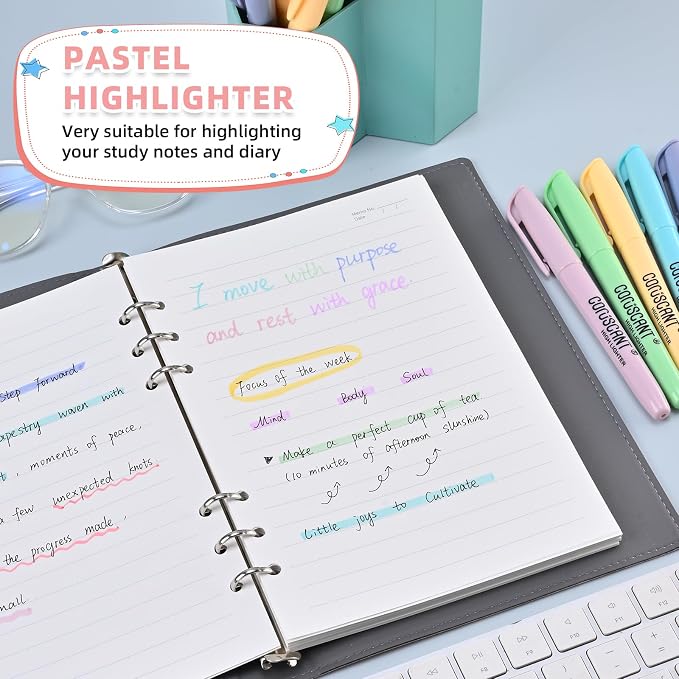 PASTEL
HIGHLIGHTER
Very suitable for highlighting
your study notes and diary
Memo No.
Date / /
I move with purpose
and rest with grace.
Focus of the week
Mind Body Soul
Make a perfect cup of tea
(10 minutes of afternoon sunshine)
Little joys to Cultivate
Step Forward
apestry woven with
t, moments of peace,
a few unexpected knots
the progress made,
mall
COLISCANT
HIGHLIGHTER
COLISCANT
HIGHLIGHTER
COLISCANT
HIGHLIGHTER
F7
F8
F9
F10
F11
F12